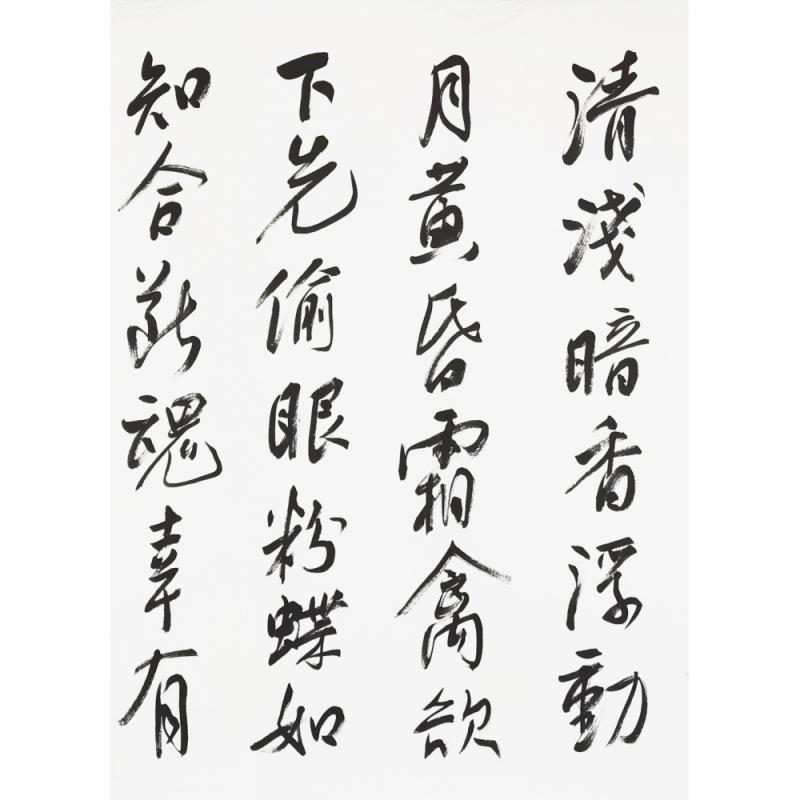 清淺暗香浮動
月黃昏霜禽欲
下先偷眼粉蝶如
知合斷魂幸有